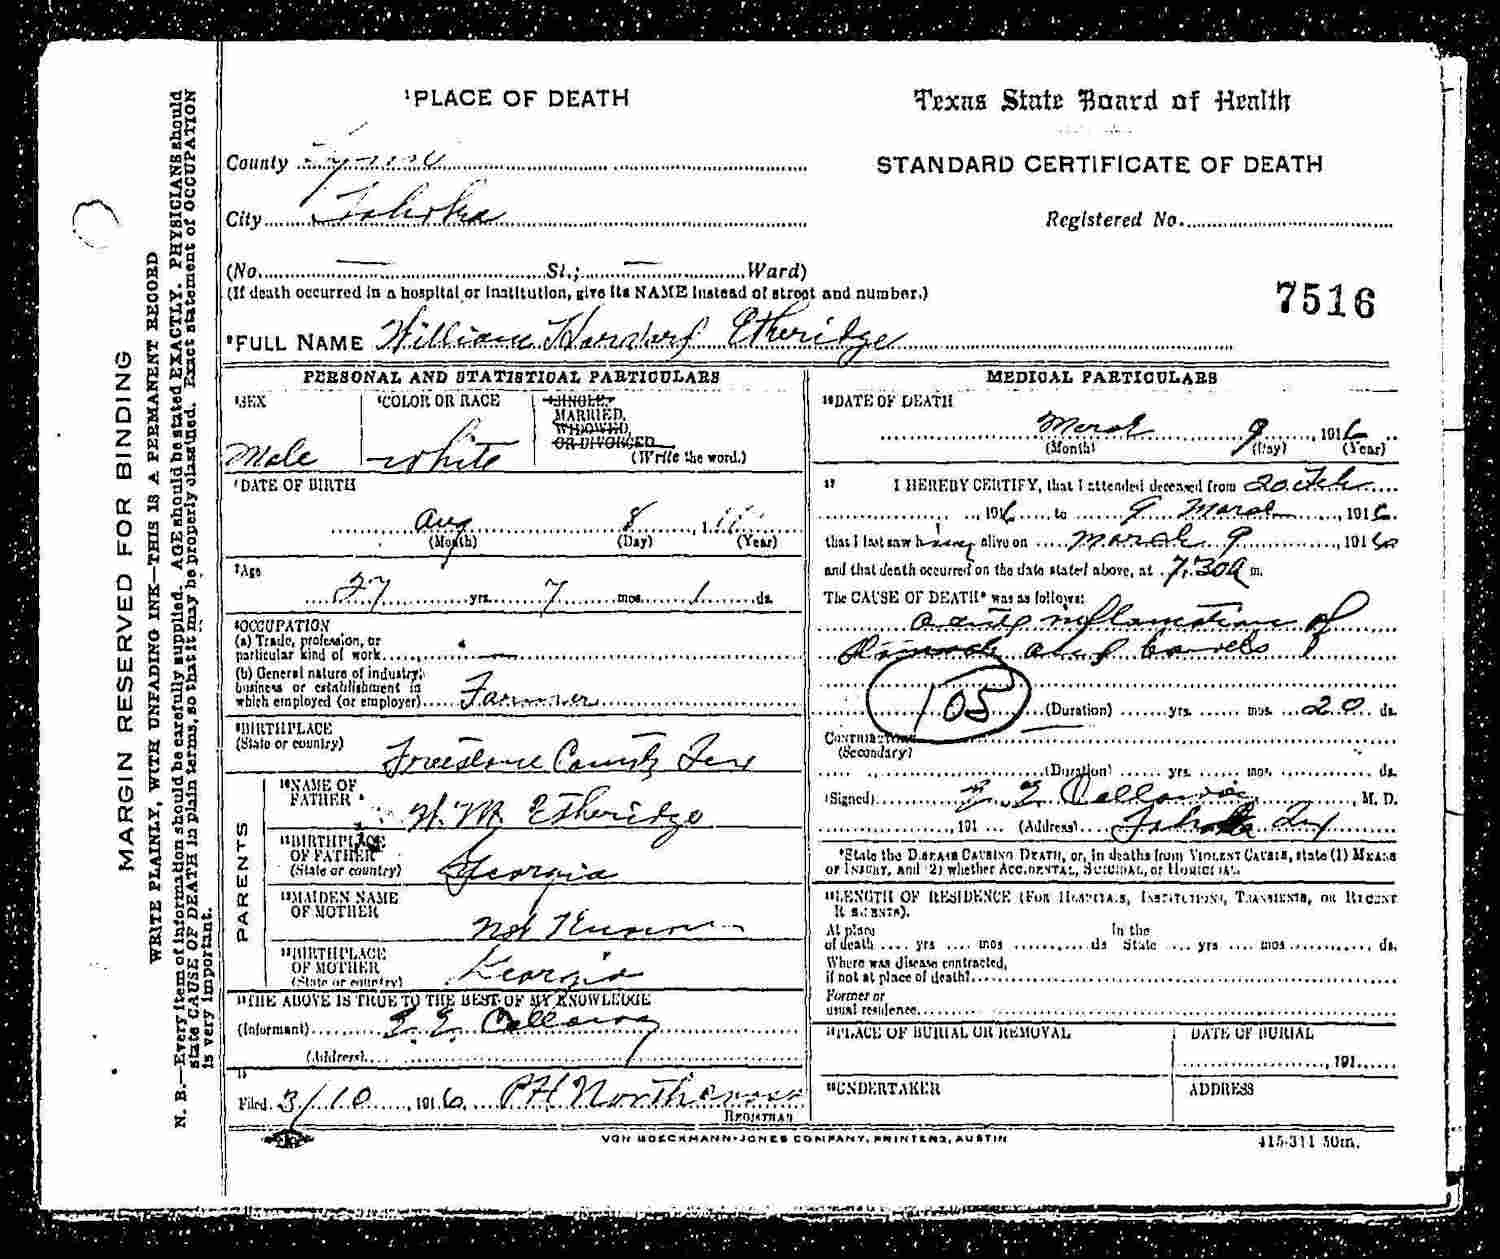 ¹PLACE OF DEATH
Texas State Board of Health
County Lynn
STANDARD CERTIFICATE OF DEATH
City Tahoka
Registered No.
(No. — St.; — Ward)
(If death occurred in a hospital or institution, give its NAME instead of street and number.)
7516
²FULL NAME William Etheridge
PERSONAL AND STATISTICAL PARTICULARS
³SEX
Male
⁴COLOR OR RACE
White
⁵SINGLE,
MARRIED,
WIDOWED,
OR DIVORCED
(Write the word.)
⁶DATE OF BIRTH
Aug 8, 1
(Month) (Day) (Year)
⁷Age
27 yrs. 7 mos. 1 ds.
⁸OCCUPATION
(a) Trade, profession, or
particular kind of work
(b) General nature of industry,
business or establishment in
which employed (or employer) Farmer
⁹BIRTHPLACE
(State or country)
Freestone County Tex
PARENTS
¹⁰NAME OF
FATHER
W. M. Etheridge
¹¹BIRTHPLACE
OF FATHER
(State or country)
Georgia
¹²MAIDEN NAME
OF MOTHER
Not Known
¹³BIRTHPLACE
OF MOTHER
(State or country)
Georgia
¹⁴THE ABOVE IS TRUE TO THE BEST OF MY KNOWLEDGE
(Informant) E. E. Callaway
(Address)
15
Filed 3/10, 1916 REGISTRAR
MEDICAL PARTICULARS
¹⁶DATE OF DEATH
March 9, 1916
(Month) (Day) (Year)
17 I HEREBY CERTIFY, that I attended deceased from 20 Feb
, 1916, to 9 March, 1916
that I last saw him alive on March 9, 1916
and that death occurred on the date stated above, at 7:30 a m.
The CAUSE OF DEATH* was as follows:
acute inflamation of
Stomach and bowels
105
(Duration) yrs. mos. 20 ds.
CONTRIBUTORY
(Secondary)
(Duration) yrs. mos. ds.
(Signed) E. E. Callaway, M. D.
, 191 (Address) Tahoka Tex
*State the DISEASE CAUSING DEATH, or, in deaths from VIOLENT CAUSES, state (1) MEANS
OF INJURY, and (2) whether ACCIDENTAL, SUICIDAL, or HOMICIDAL.
¹⁸LENGTH OF RESIDENCE (FOR HOSPITALS, INSTITUTIONS, TRANSIENTS, OR RECENT
RESIDENTS).
At place In the
of death yrs mos ds State yrs mos ds.
Where was disease contracted,
if not at place of death?
Former or
usual residence
¹⁹PLACE OF BURIAL OR REMOVAL
DATE OF BURIAL
, 191
²⁰UNDERTAKER
ADDRESS
VON BOECKMANN-JONES COMPANY, PRINTERS, AUSTIN
415-311 50m.
MARGIN RESERVED FOR BINDING
WRITE PLAINLY, WITH UNFADING INK—THIS IS A PERMANENT RECORD
N. B.—Every item of information should be carefully supplied. AGE should be stated EXACTLY. PHYSICIANS should
state CAUSE OF DEATH in plain terms, so that it may be properly classified. Exact statement of OCCUPATION
is very important.